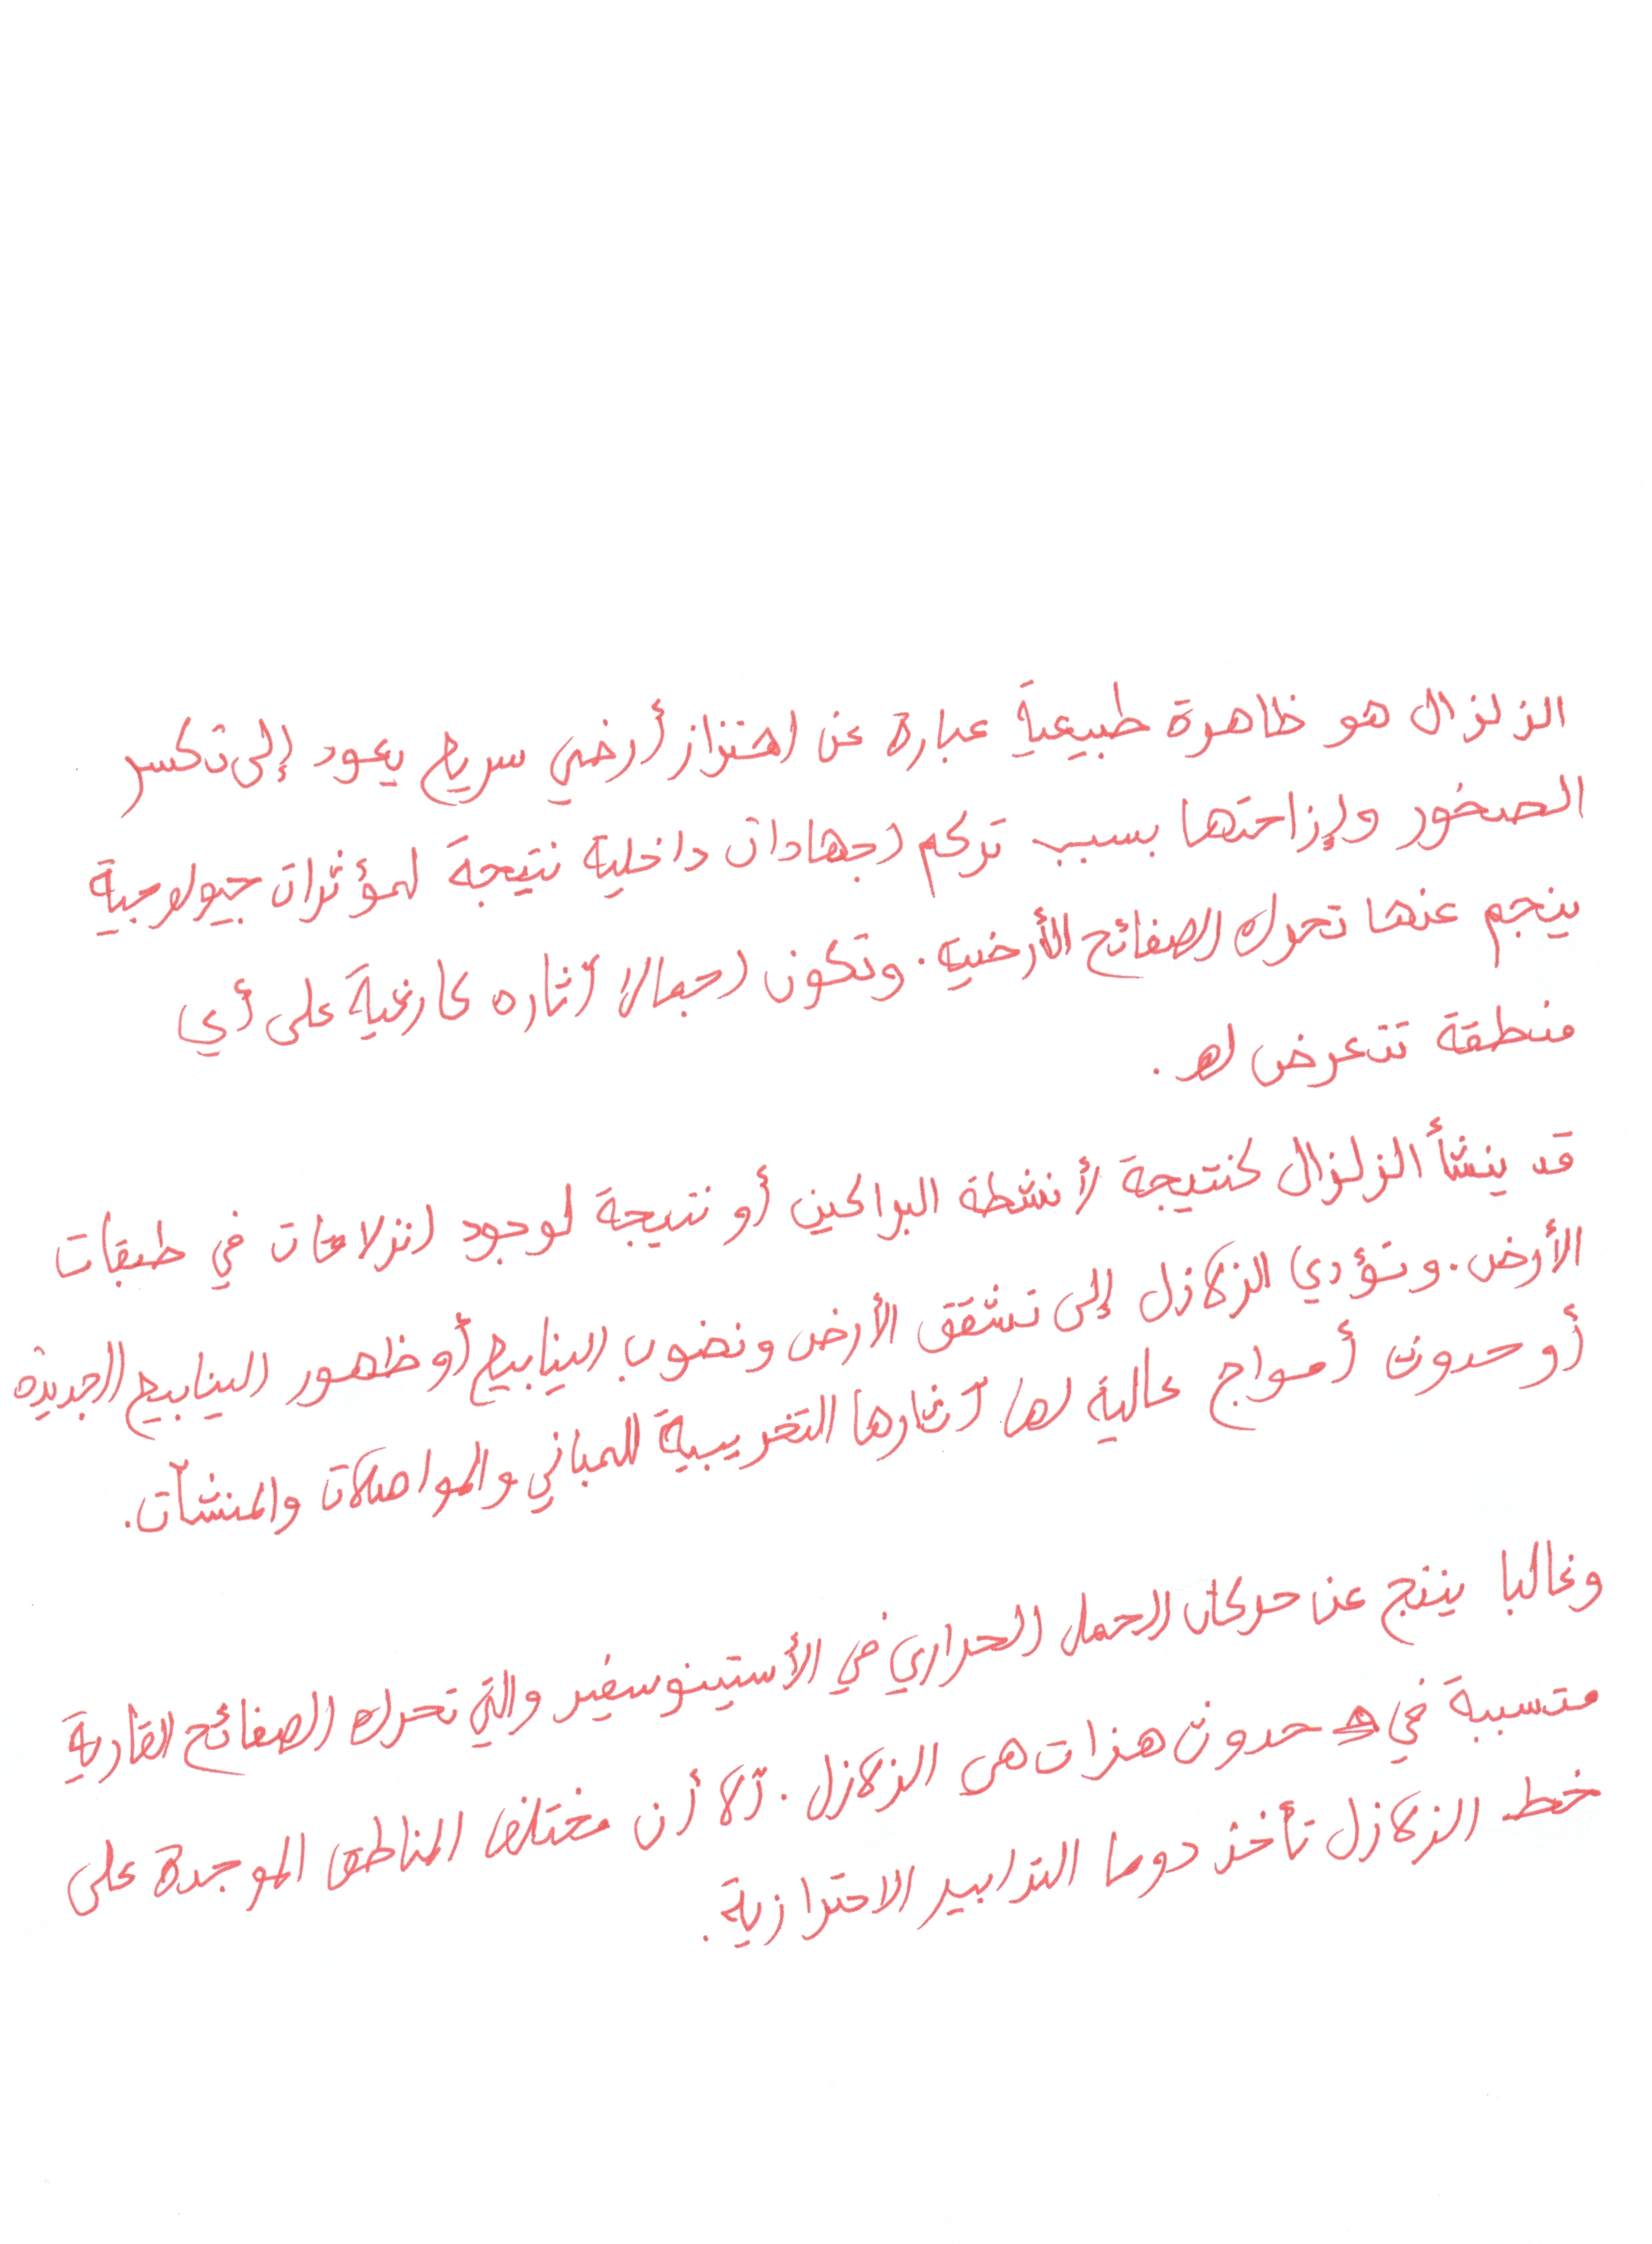 الزلزال هو ظاهرة طبيعية عبارة عن اهتزاز أرضي سريع يعود إلى تكسر
الصخور وإزاحتها بسبب تركم اجهادات داخلية نتيجة لمؤثرات جيولوجية
ينجم عنها تحرك الصفائح الأرضية. وتكون اجمالا آثاره كارثية على أي
منطقة تتعرض له.
قد ينشأ الزلزال كنتيجة لأنشطة البراكين أو نتيجة لوجود انزلاقات في طبقات
الأرض. وتؤدي الزلازل إلى تشقق الأرض ونضوب الينابيع أو ظهور الينابيع الجديدة
أو حدوث أمواج عالية لها آثارها التخريبية للمباني والمواصلات والمنشآت.
وغالبا ينتج عن حركات الحمل الحراري في الأستينوسفير والتي تحرك الصفائح القارية
متسببة في حدوث هزات هي الزلازل. ألا أن مختلف المناطق الموجدة على
خط الزلازل تأخذ دوما التدابير الاحترازية.